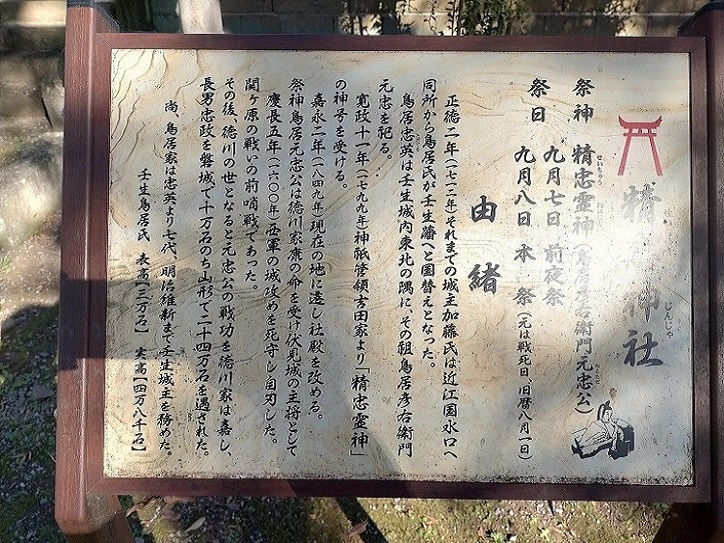 精 神社
じんじゃ
祭神 精忠霊神(鳥居彦右衛門元忠公)
せいちゅう
祭日 九月七日 前夜祭
九月八日 本 祭(元は戦死日、旧暦八月一日)
由緒
正徳二年(一七一二年)それまでの城主加藤氏は近江国水口へ
同所から鳥居氏が壬生藩へと国替えとなった。
鳥居忠英は壬生城内東北の隅に、その祖鳥居彦右衛門
元忠を祀る。
寛政十一年(一七九九年)神祇管領吉田家より「精忠霊神」
の神号を受ける。
嘉永二年(一八四九年)現在の地に遷し社殿を改める。
祭神鳥居元忠公は徳川家康の命を受け伏見城の主将として
慶長五年(一六〇〇年)西軍の城攻めを死守し自刃した。
関ヶ原の戦いの前哨戦であった。
その後、徳川の世となると元忠公の戦功を徳川家は嘉し、
長男忠政を磐城で十万石のち山形で二十四万石を遇された。
尚、鳥居家は忠英より七代、明治維新まで壬生城主を務めた。
壬生鳥居氏 表高【三万石】 実高【四万八千石】